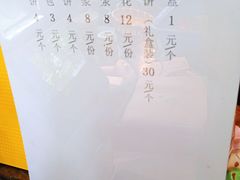 1元/个
饼(礼盒装)30元/个
花12元/份
8元/份
8元/份
4元/个
包3元/个
饼4元/个